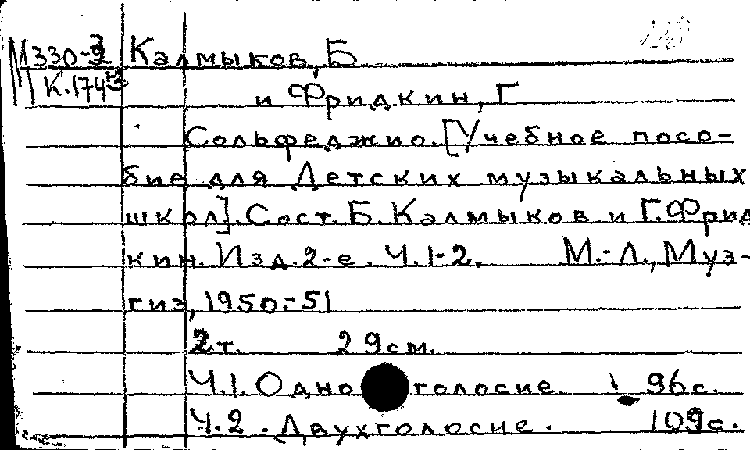 М330-3 Калмыков, Б
К.174 и Фридкин, Г
Сольфеджио. [Учебное посо-
бие для Детских музыкальных
школ]. Сост. Б. Калмыков и Г. Фрид
кин. Изд. 2-е. Ч. 1-2. М.-Л., Муз-
гиз, 1950-51
2т. 29см.
Ч.1. Одноголосие. 96с.
Ч.2. Двухголосие. 109с.